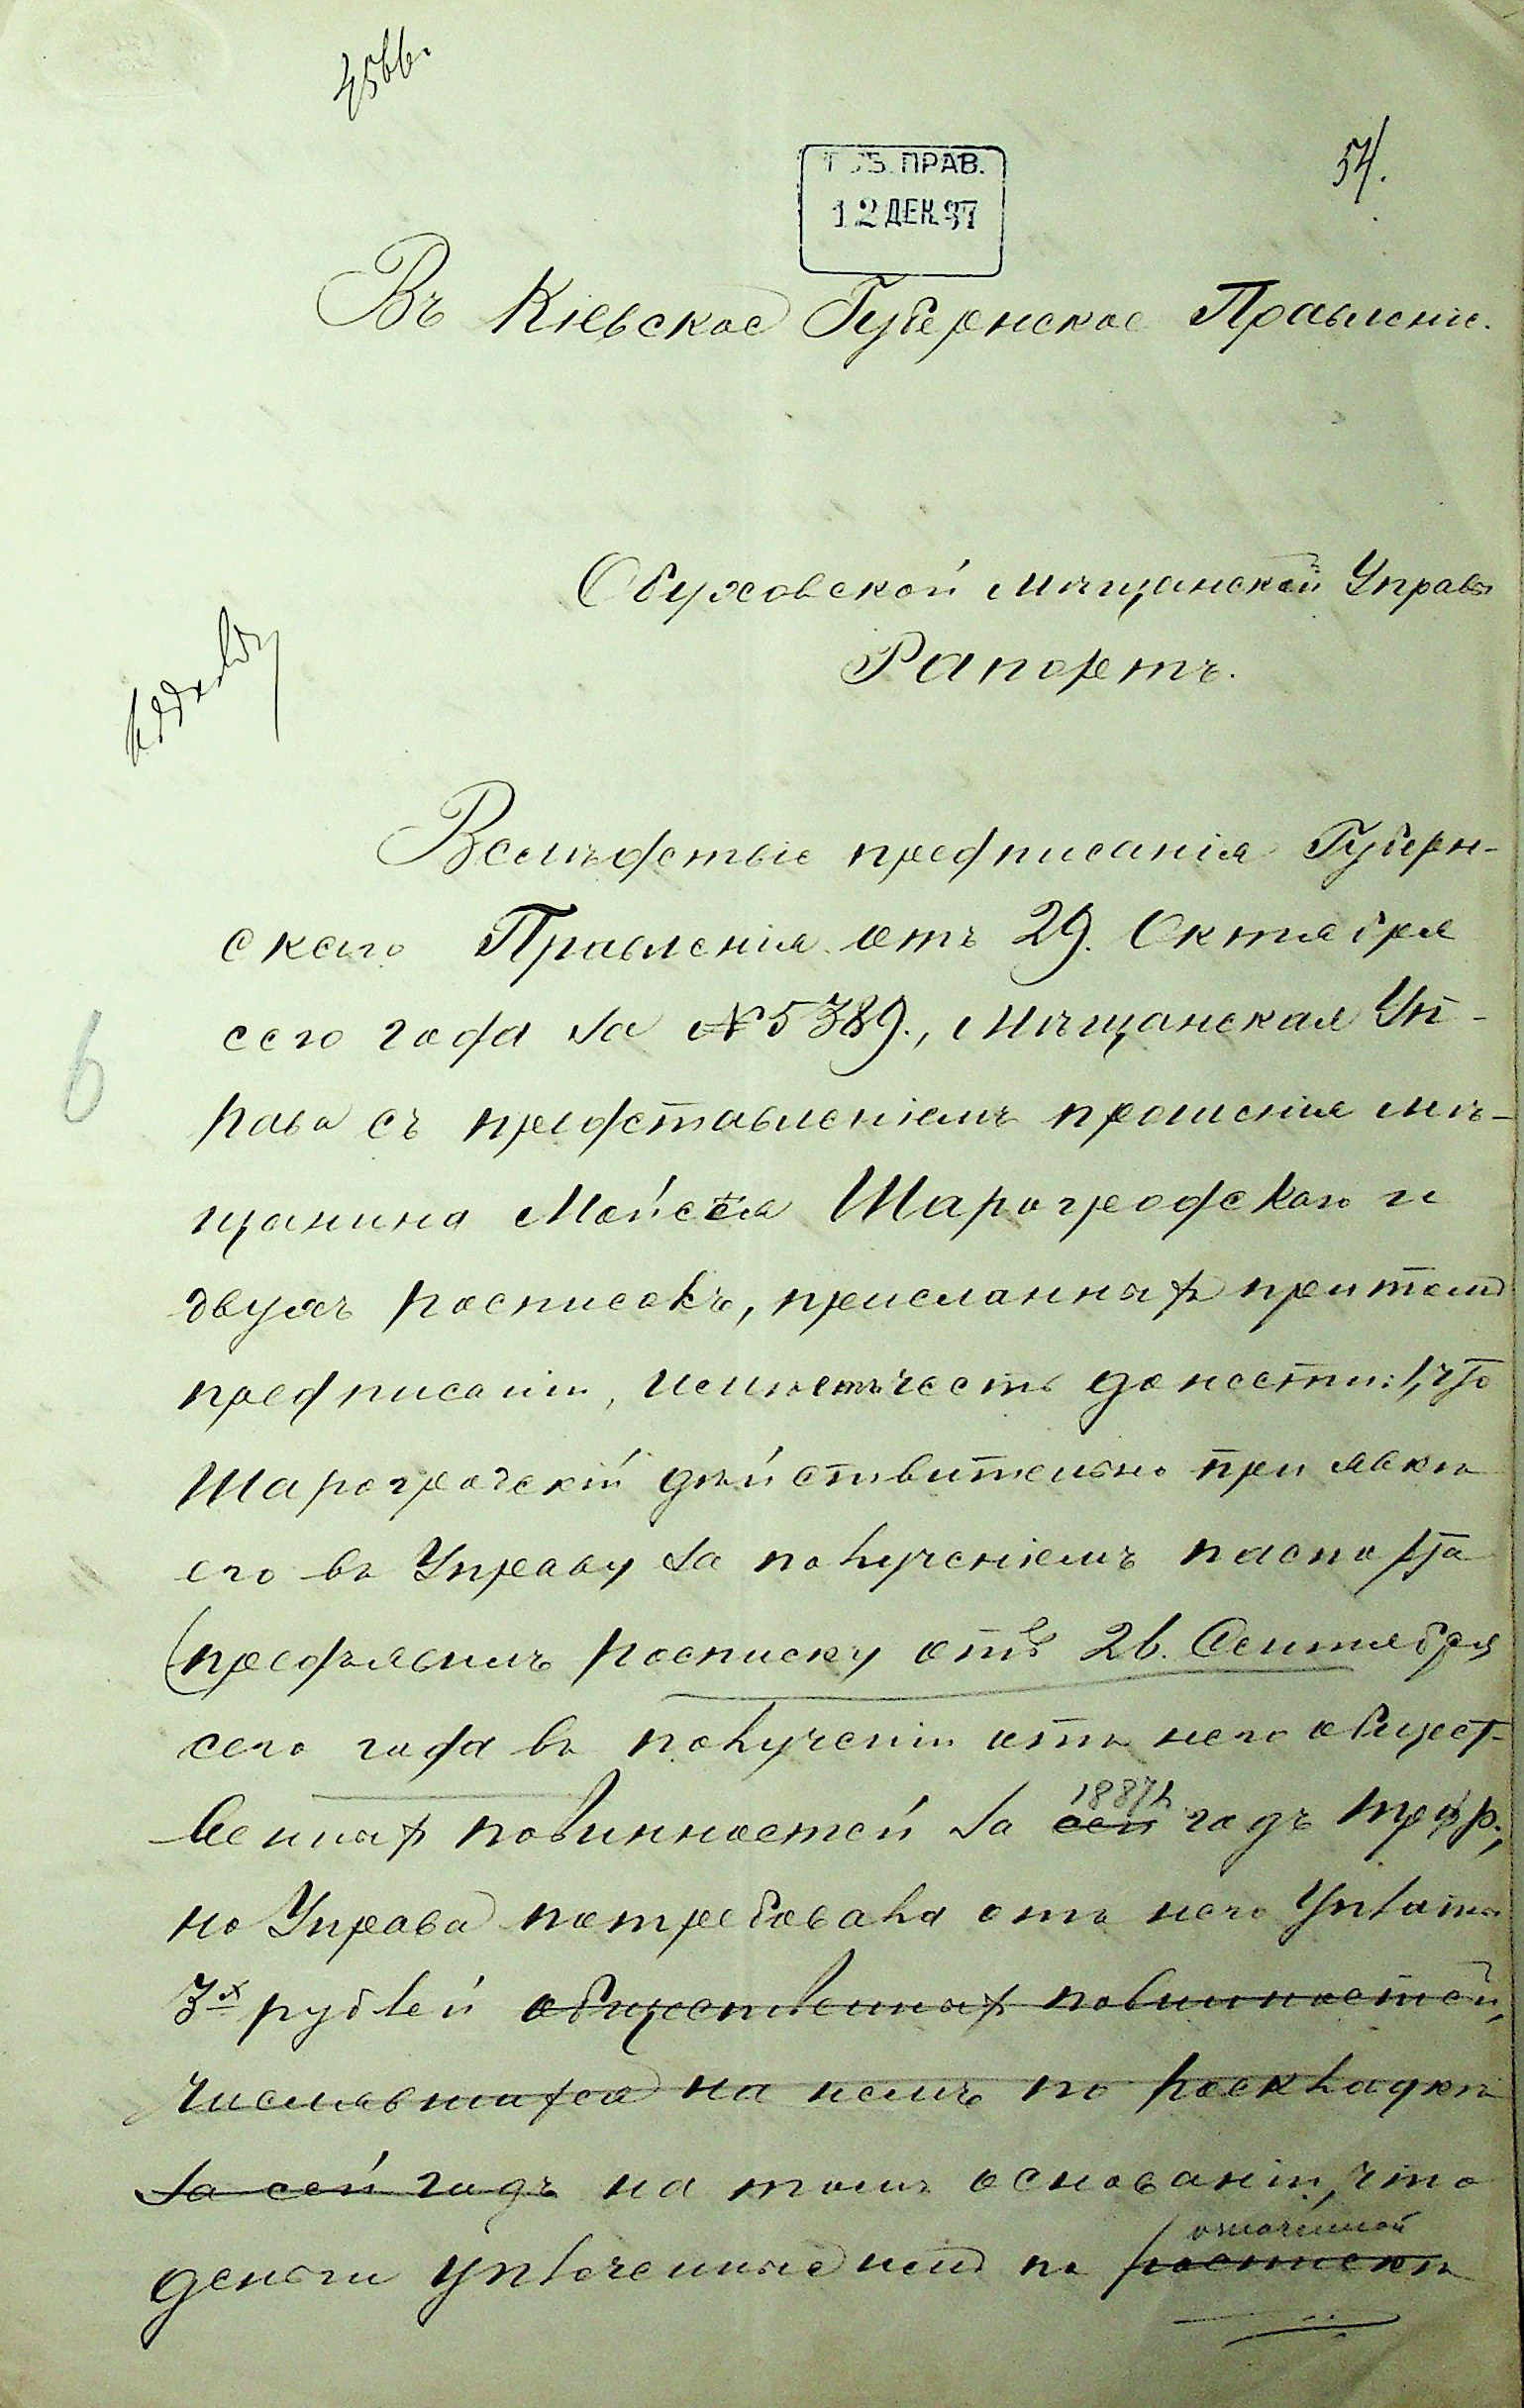 54.
ГУБ. ПРАВ.
12 ДЕК. 97
Въ Кіевское Губернское Правленіе.
Обуховской Мѣщанской Управы
Рапортъ.
Вслѣдствіе предписанія Губерн-
скаго Правленія отъ 29. Октября
сего года за № 5389., Мѣщанская Уп-
рава съ представленіемъ прошенія мѣ-
щанина Мойсея Шарогродскаго и
двухъ росписокъ, присланныхъ при томъ
предписаніи, имѣетъ честь донести:, что
Шарогродскій дѣйствительно при явкѣ
его въ Управу за полученіемъ паспорта
предъявилъ росписку отъ 26. Сентября
сего года въ полученіи отъ него общест-
венныхъ повинностей за сей 1887й годъ три р.,
но Управа потребовала отъ него уплаты
3х рублей общественныхъ повинностей,
числявшихся на немъ по раскладкѣ
за сей годъ на томъ основаніи, что
деньги уплоченные имъ по означенной
роспискѣ